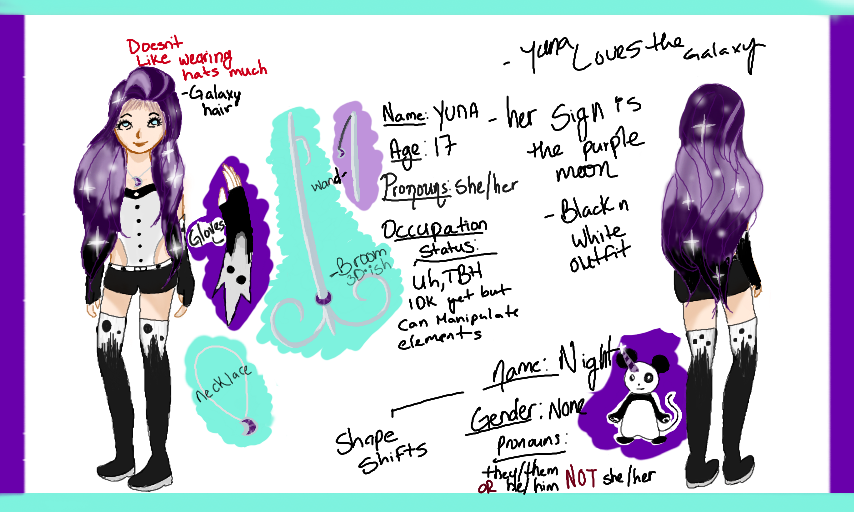 Doesn't
Like wearing
hats much
-Galaxy
hair
- Yuna Loves the Galaxy
Name: YUNA
Age: 17
Pronouns: she/her
Occupation
Status:
Uh, TBH
IDK yet but
Can Manipulate
elements
- her sign is
the purple
moon
- Black n
white
outfit
wand-
Gloves
-Broom
3D:ish
necklace
Name: Night
Gender: None
Pronouns:
they/them
OR he/him NOT she/her
Shape
Shifts